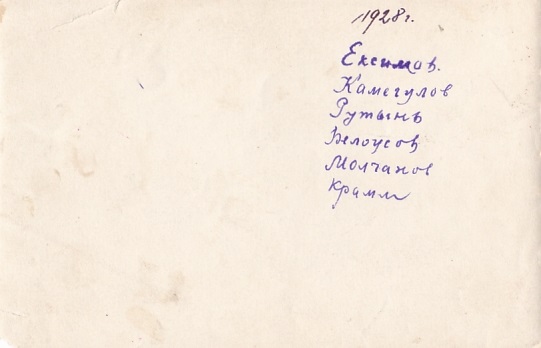 1928 г.
Ексимов.
Камегулов
Рутынь
Белоусов
Молчанов
Крамм